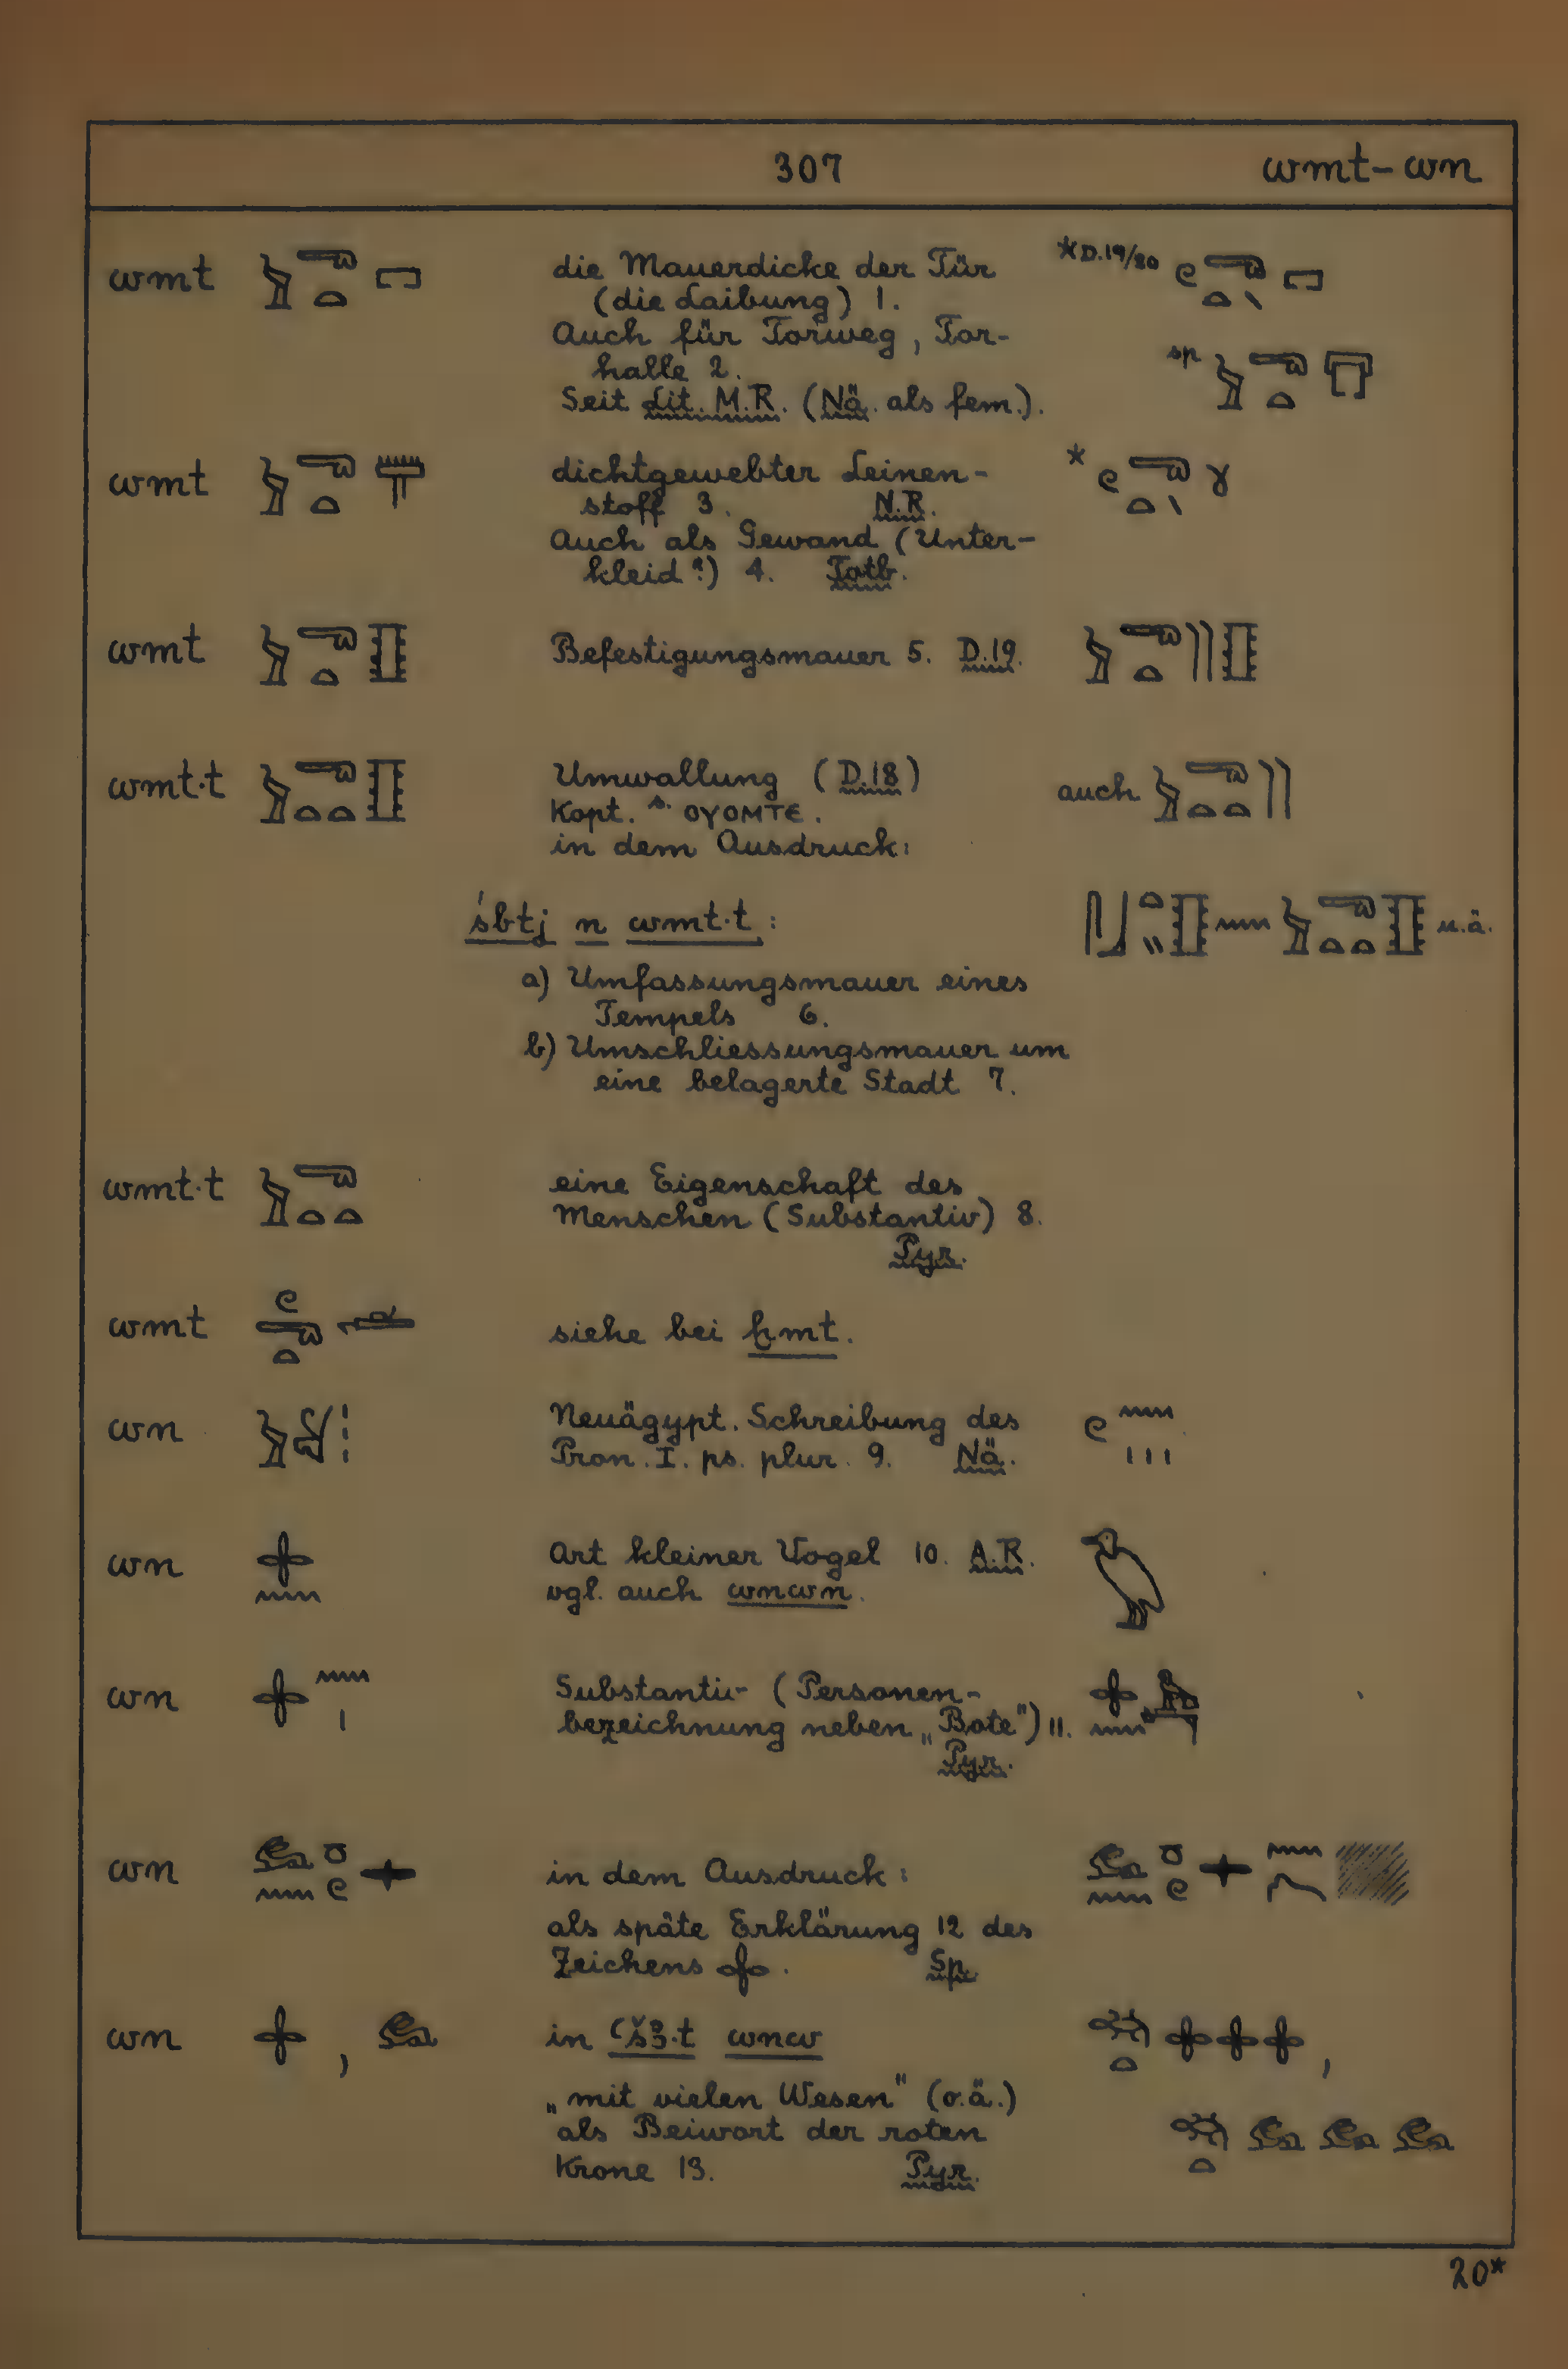 307 wmt – wn
wmt die Mauerdicke der Tür *D.19/20
(die Laibung) 1.
Auch für Torweg, Tor-
halle 2. sp
Seit Lit. M.R. (Nä. als fem.).
wmt dichtgewebter Leinen- *
stoff 3. N.R.
Auch als Gewand (Unter-
kleid?) 4. Totb.
wmt Befestigungsmauer 5. D.19.
wmt·t Umwallung (D.18) auch
Kopt. s. ⲟⲩⲟⲙⲧⲉ.
in dem Ausdruck:
śbtj n wmt·t: u.ä.
a) Umfassungsmauer eines
Tempels 6.
b) Umschliessungsmauer um
eine belagerte Stadt 7.
wmt·t eine Eigenschaft des
Menschen (Substantiv) 8.
Pyr.
wmt siehe bei ḫmt.
wn Neuägypt. Schreibung des
Pron. I. ps. plur. 9. Nä.
wn Art kleiner Vogel 10. A.R.
vgl. auch wnwn.
wn Substantiv (Personen-
bezeichnung neben „Bote") 11.
Pyr.
wn in dem Ausdruck:
als späte Erklärung 12 des
Zeichens . Sp.
wn , in ꜥšꜣ·t wnw ,
„mit vielen Wesen" (o.ä.)
als Beiwort der roten
Krone 13. Pyr.
20*